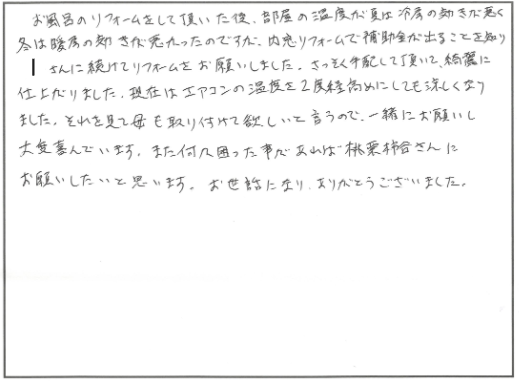 お風呂のリフォームをして頂いた後、部屋の温度が夏は冷房の効きが悪く
冬は暖房の効きが悪かったのですが、内窓リフォームで補助金が出ることを知り
さんに続けてリフォームをお願いしました。さっそく手配して頂いて、綺麗に
仕上がりました。現在はエアコンの温度を2度程高めにしても涼しくなり
ました。それを見て母も取り付けて欲しいと言うので、一緒にお願いし
大変喜んでいます。また何か困った事があれば桃栗柿合さんに
お願いしたいと思います。お世話になり、ありがとうございました。